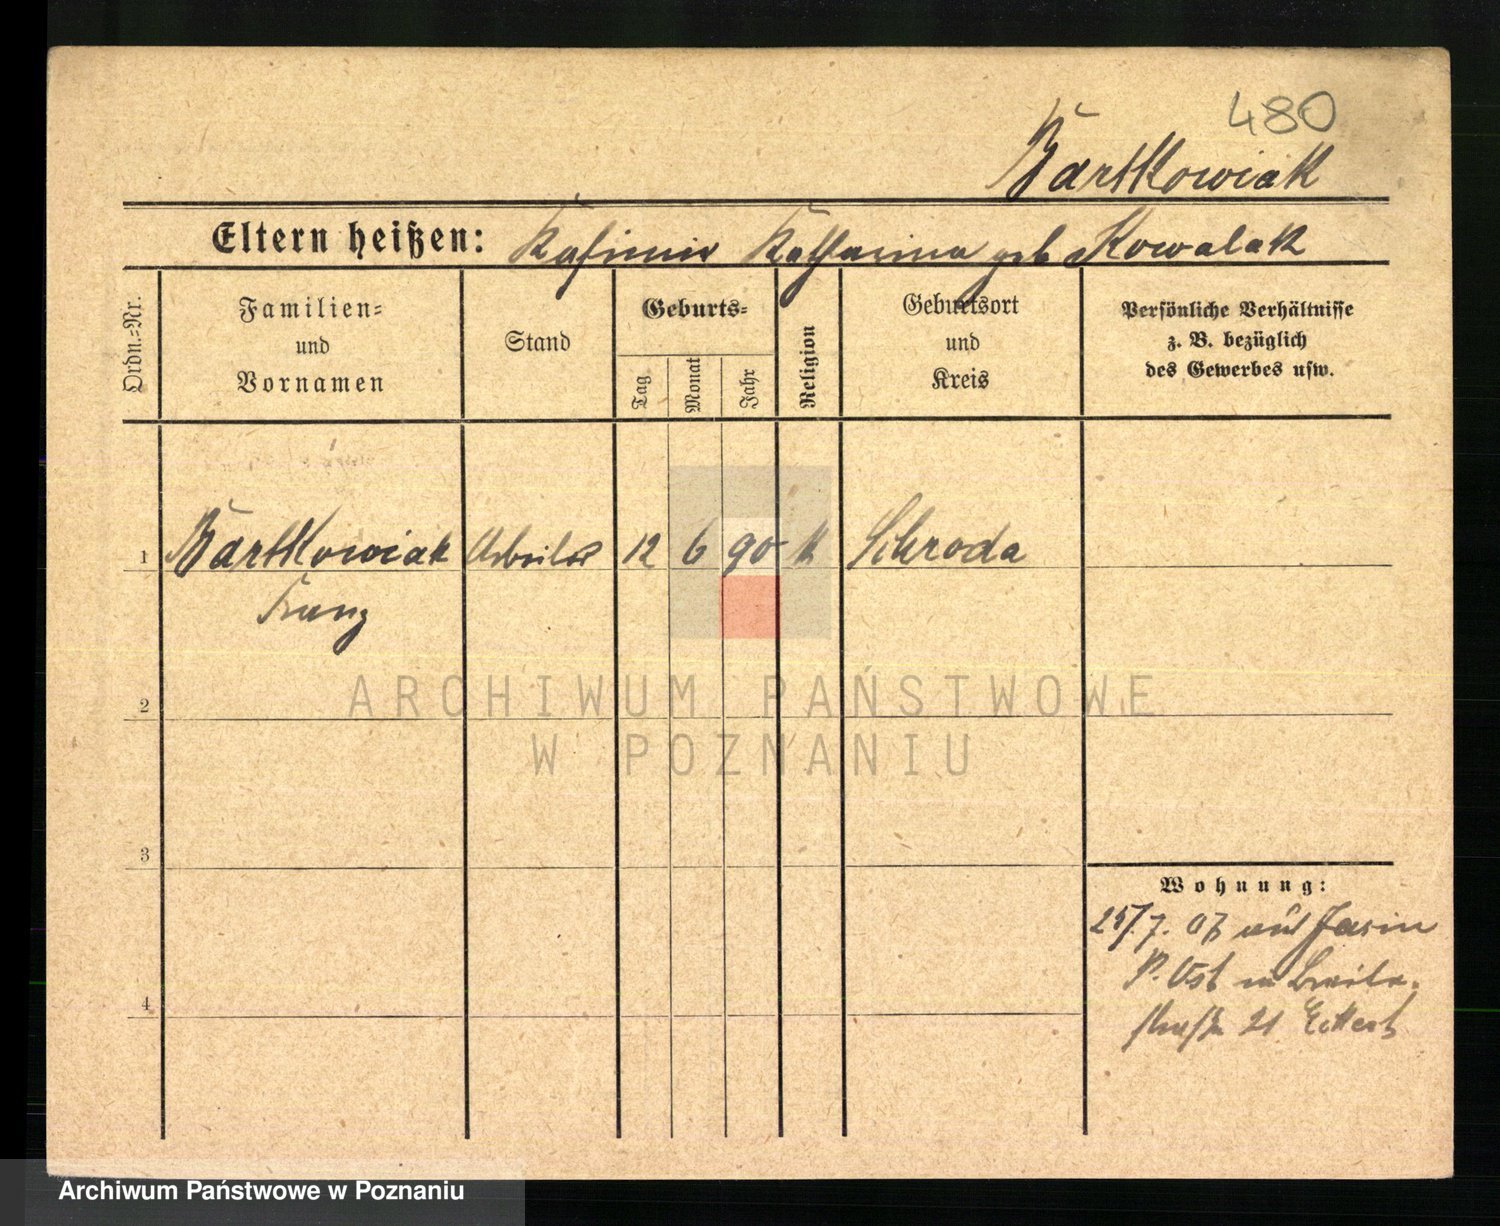 480
Bartkowiak
Eltern heißen: Kasimir Katharina geb Kowalak
Ordn.-Nr.
Familien-
und
Vornamen
Stand
Geburts-
Tag
Monat
Jahr
Religion
Geburtsort
und
Kreis
Persönliche Verhältnisse
z. B. bezüglich
des Gewerbes usw.
1 Bartkowiak Arbeiter 12 6 90 k Schroda
Franz
2
3
4
Wohnung:
25/7. 07 aus Jasin
P. Ost n Breite-
straße 21 Eckert
ARCHIWUM PAŃSTWOWE
W POZNANIU
Archiwum Państwowe w Poznaniu